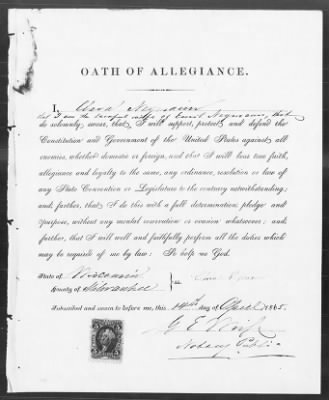 OATH OF ALLEGIANCE.
I,
that I am the lawful wife of Neymann, that
do solemnly swear, that I will support, protect and defend the
Constitution and Government of the United States against all
enemies, whether domestic or foreign, and that I will bear true faith,
allegiance and loyalty to the same, any ordinance, resolution or law of
any State Convention or Legislature to the contrary notwithstanding;
and, further, that I do this with a full determination, pledge and
purpose, without any mental reservation or evasion whatsoever; and,
further, that I will well and faithfully perform all the duties which
may be required of me by law: So help me God.
State of Wisconsin
County of Milwaukee } ss
Subscribed and sworn to before me, this 14th day of April 1865.
G E
Notary Public